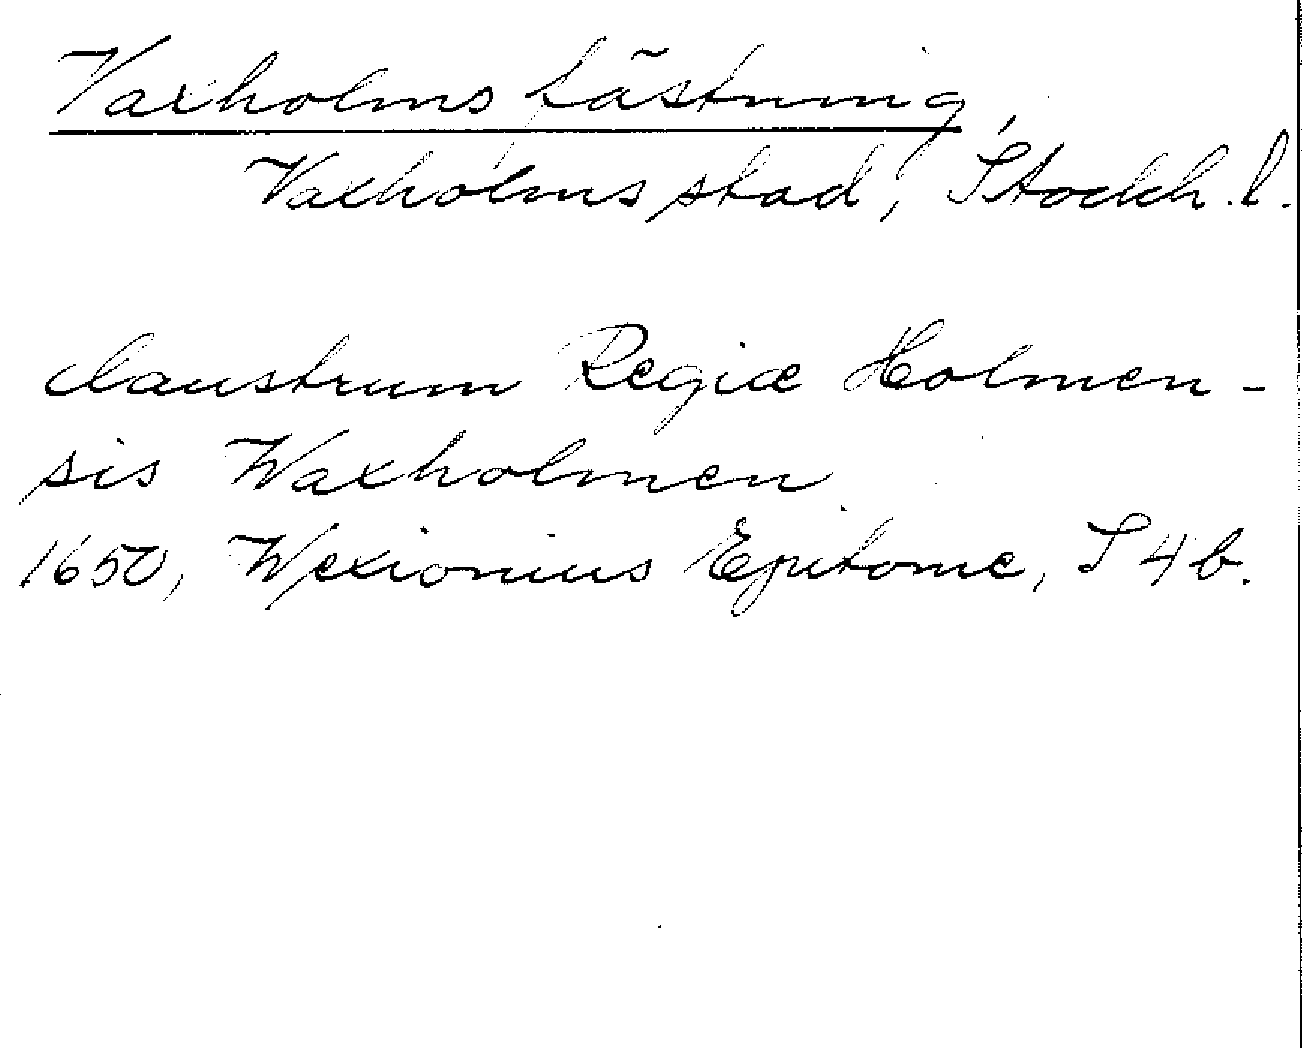 Vaxholms fästning,
Vaxholms stad, Stockh. l.
claustrum Regiæ Holmen-
sis Waxholmen
1650, Wexionius Epitome, S 4 b.